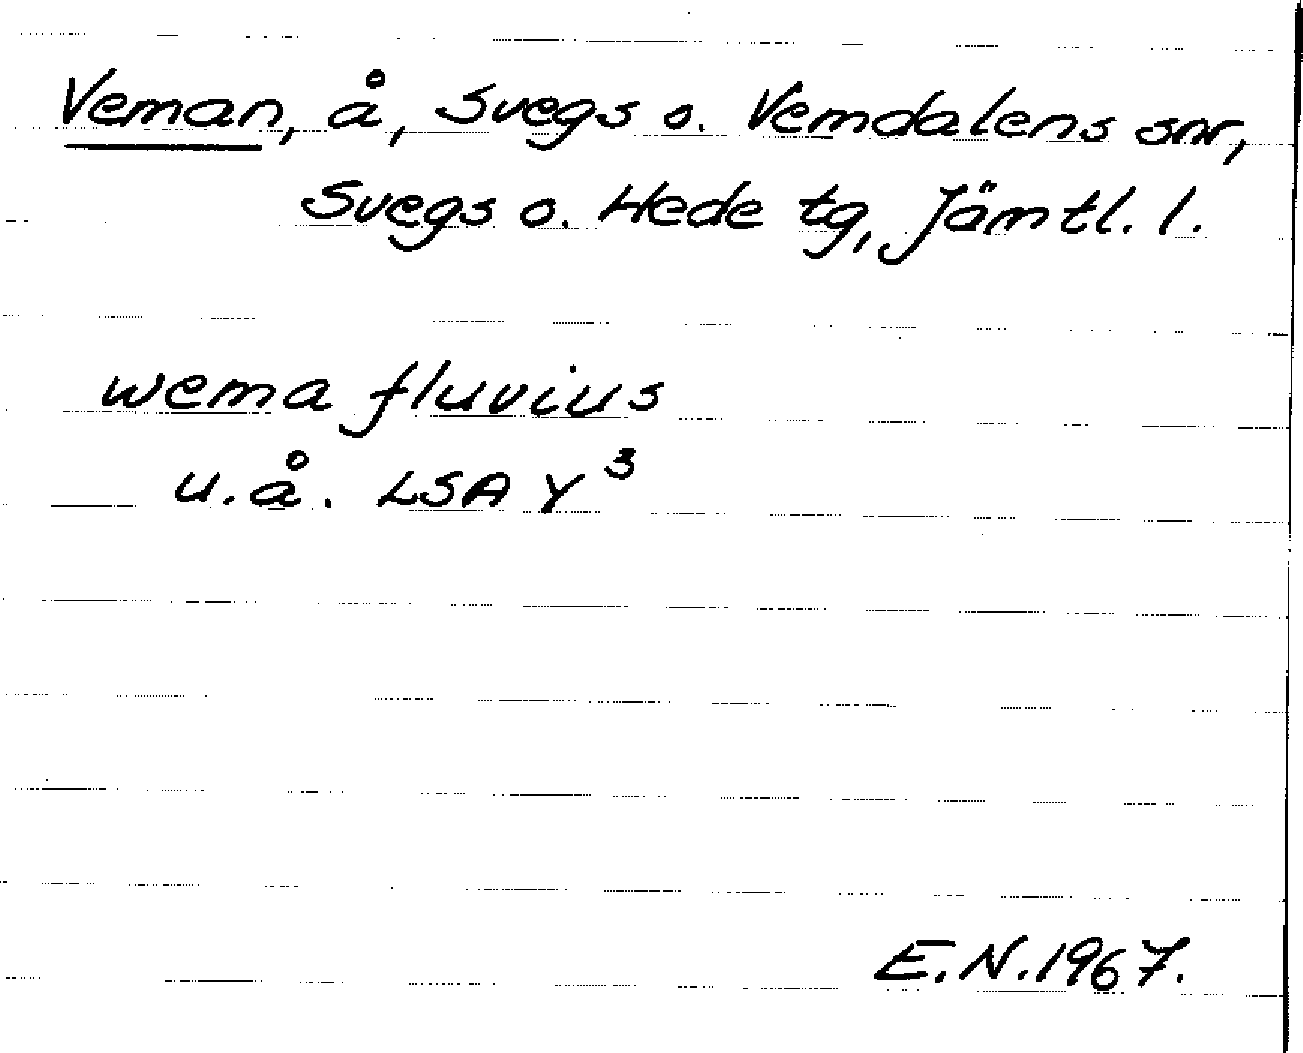 Veman, å, Svegs o. Vemdalens snr,
Svegs o. Hede tg, Jämtl. l.
wema fluvius
u.å. LSA Y³
E.N. 1967.